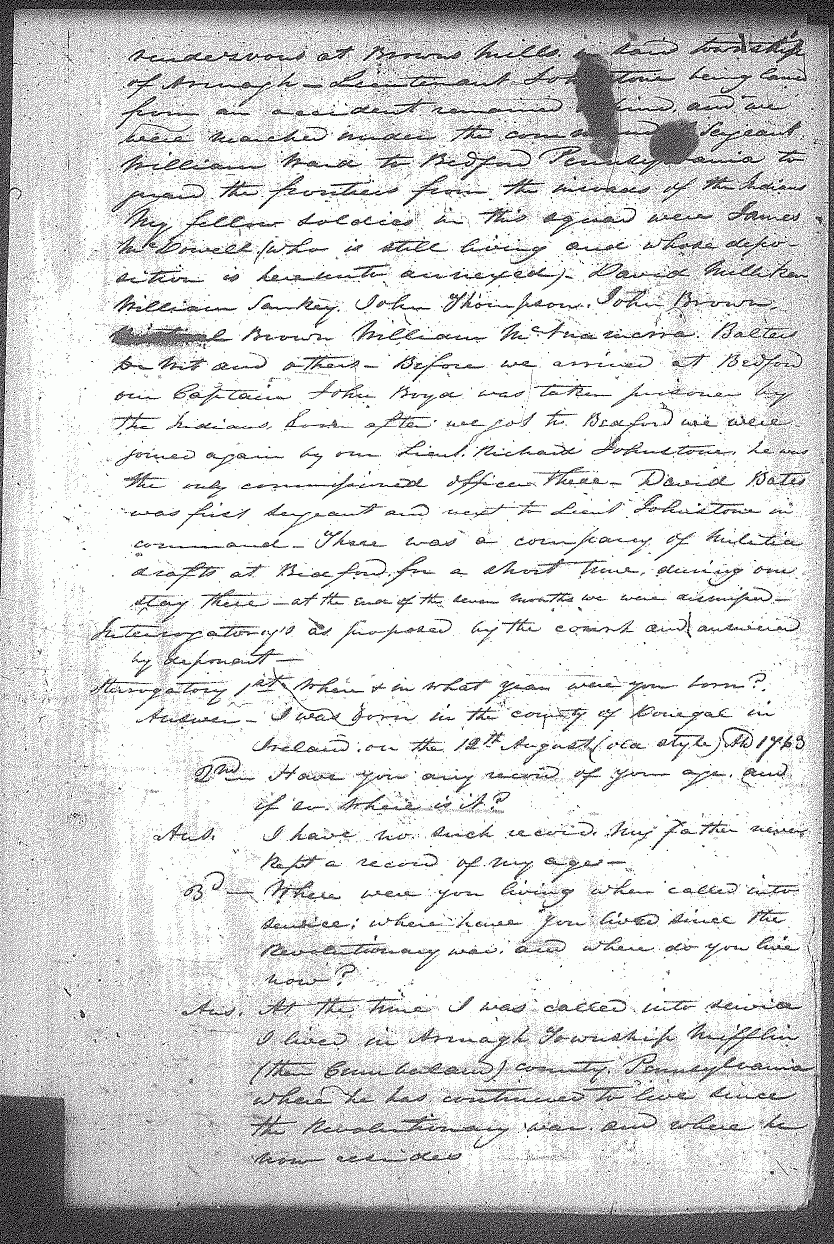 rendesvous at Browns Mills in said township
of Armagh – Lieutenant Johnstone being lame
from an accident remained behind and we
were marched under the command Sergeant
William Ward to Bedford Pennsylvania to
guard the frontiers from the inroads of the Indians
My fellow soldies in this squad were James
McDowell (who is still living and whose depo-
sition is hereunto annexed) – David Milliken
William Sankey. John Thompson. John Brown.
Brown William McNamerra. Balters
and others – Before we arrived at Bedford
our Captain John Boyd was taken prisoner by
the Indians. Soon after we got to Bedford we were
joined again by our Lieut. Richard Johnstone. he was
the only commissioned officer there – David Bates
was first sergeant and next to Lieut Johnstone in
command – There was a company of Militia
drafts at Bedford for a short time, during our
stay there – at the end of the seven months we were dismissed –
Interrogatory's as proposed by the court and answered
by deponent –
Interrogatory 1st Where & in what year were you born?
Answer – I was born in the county of Donegal in
Ireland on the 12th August (old style) AD 1763
2nd – Have you any record of your age. and
if so. where is it?
Ans. I have no such record. My father never
kept a record of my ages –
3d – Where were you living when called into
service; where have you lived since the
Revolutionary war. and where do you live
now?
Ans. At the time I was called into service
I lived in Armagh Township Mifflin
(then Cumberland) county. Pennsylvania
where he has continued to live since
the Revolutionary war. and where he
now resides